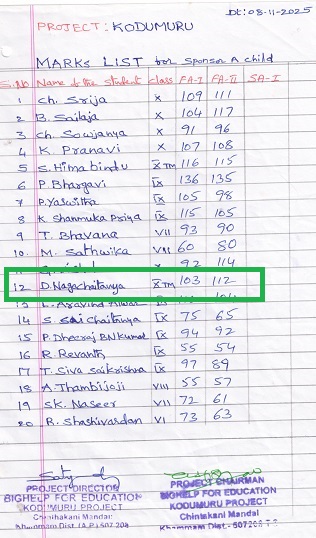 Dt: 03-11-2025
PROJECT: KODUMURU
MARKS LIST for Sponsor A child
S.No Name of the student class FA-I FA-II SA-I
1 Ch. Srija X 109 111
2 B. Sailaja X 104 117
3 Ch. Sowjanya X 91 96
4 K. Pranavi X 107 108
5 S. Hima bindu X TM 116 115
6 P. Bhargavi IX 136 135
7 P. Yaswitha IX 105 98
8 K. Shanmuka Priya IX 115 105
9 T. Bhavana VII 93 90
10 M. Sathwika VIII 60 80
X 92 114
12 D. Nagachaitanya X TM 103 112
L. Aravind
14 S. Sai Chaitanya IX 75 65
15 P. Dheeraj BN Kumar IX 94 92
16 R. Revanth IX 55 54
17 T. Siva Sai Krishna IX 97 89
18 A. Thambi Joji VIII 55 57
19 SK. Naseer VII 72 61
20 R. Shashivardan VI 73 63
PROJECT DIRECTOR
BIGHELP FOR EDUCATION
KODUMURU PROJECT
Chinthakani Mandar
Khammam Dist. (A.P.) 507 208
PROJECT CHAIRMAN
BIGHELP FOR EDUCATION
KODUMURU PROJECT
Chintakani Mandal
Khammam Dist.- 507208